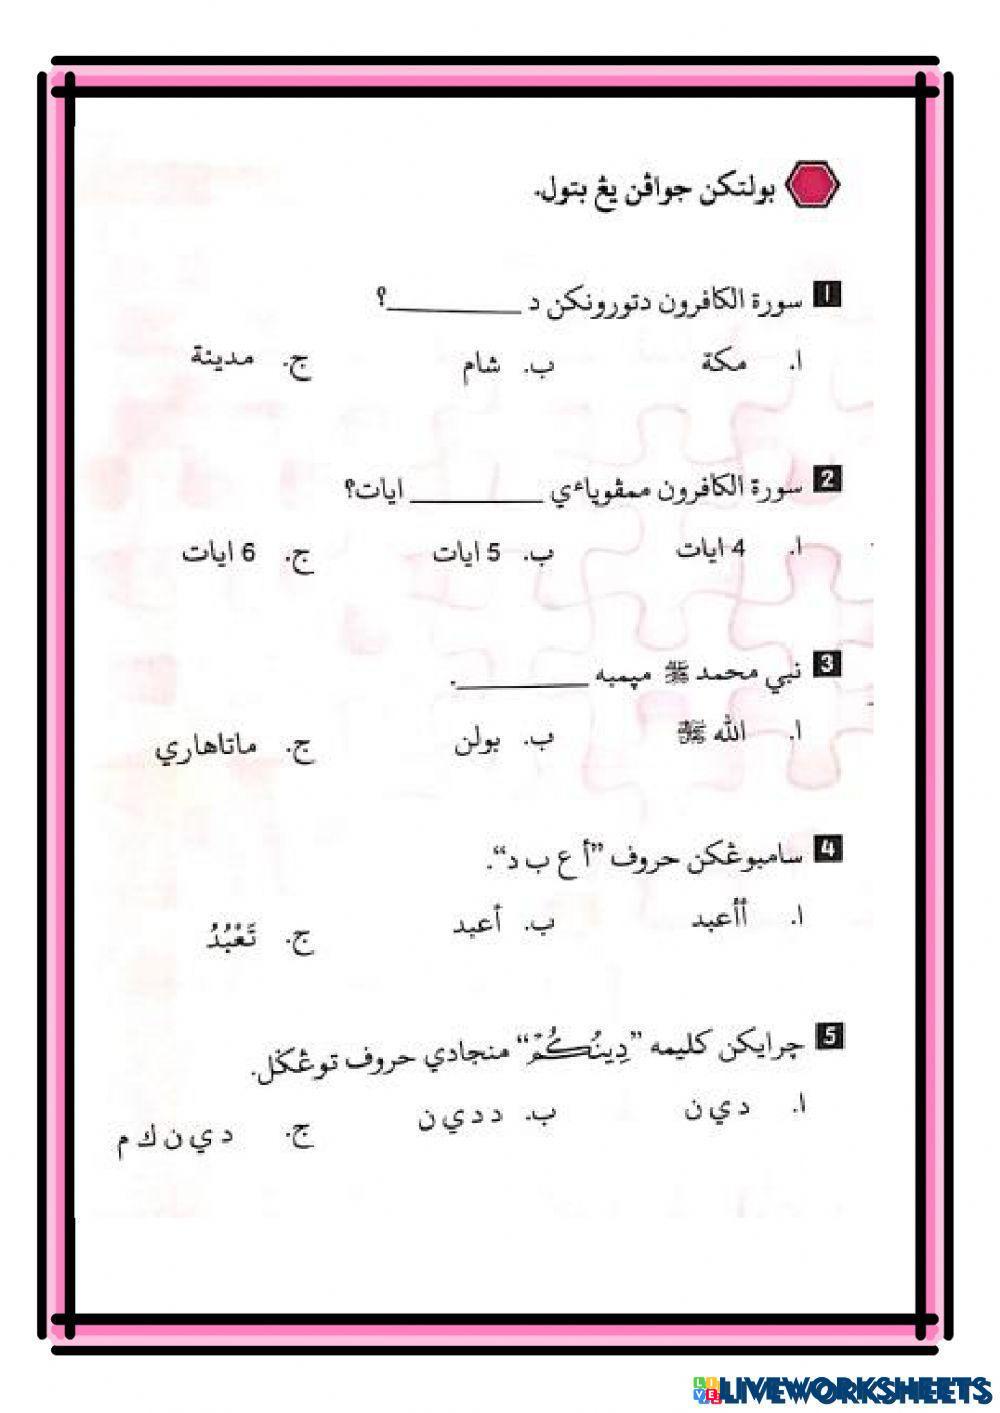 بولتکن جواڤن يڠ بتول.
1 سورة الكافرون دتورونکن د ________؟
ا. مكة ب. شام ج. مدينة
2 سورة الكافرون ممڤوياءي ________ ايات؟
ا. 4 ايات ب. 5 ايات ج. 6 ايات
3 نبي محمد ﷺ مڽمبه ________.
ا. الله ﷻ ب. بولن ج. ماتاهاري
4 سامبوڠکن حروف ”أ ع ب د“.
ا. أأعبد ب. أعبد ج. تَعْبُدُ
5 چرايکن کليمه ”دِينُكُمْ“ منجادي حروف توڠݢل.
ا. د ي ن ب. د د ي ن ج. د ي ن ك م
LIVEWORKSHEETS